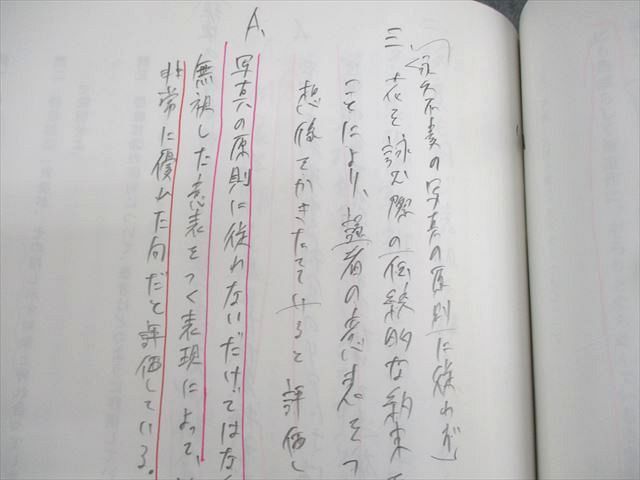 三、「永久不変の写真の原則に従わず」
花を詠む際の伝統的な約束
ことにより、読者の意表をつ
想像をかきたてていると評価し
A、
写真の原則に従わないだけではな
無視した意表をつく表現によって、
非常に優れた句だと評価している。